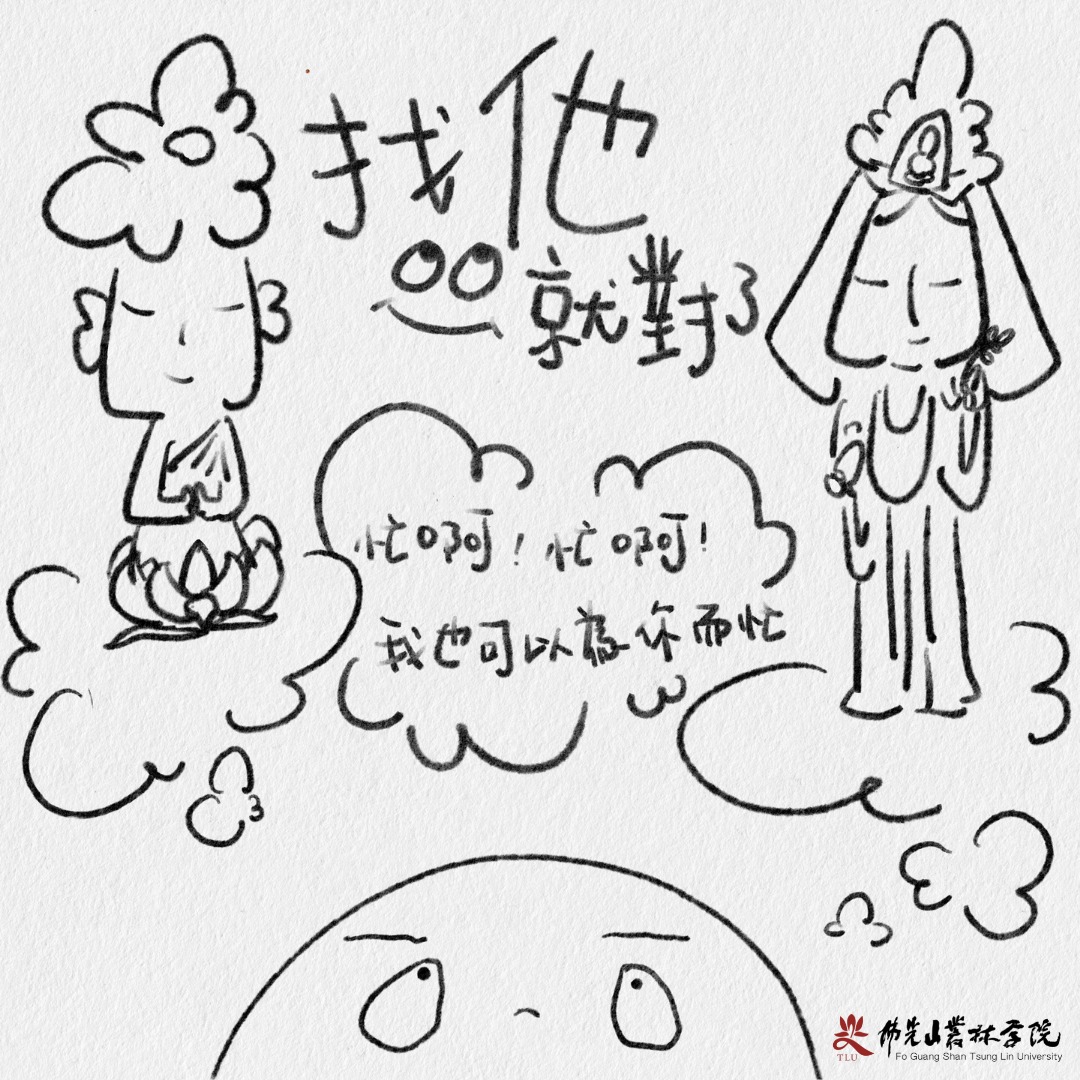 找他
就對了
忙啊!忙啊!
我也可以為你而忙
TLU
佛光山叢林学院
Fo Guang Shan Tsung Lin University